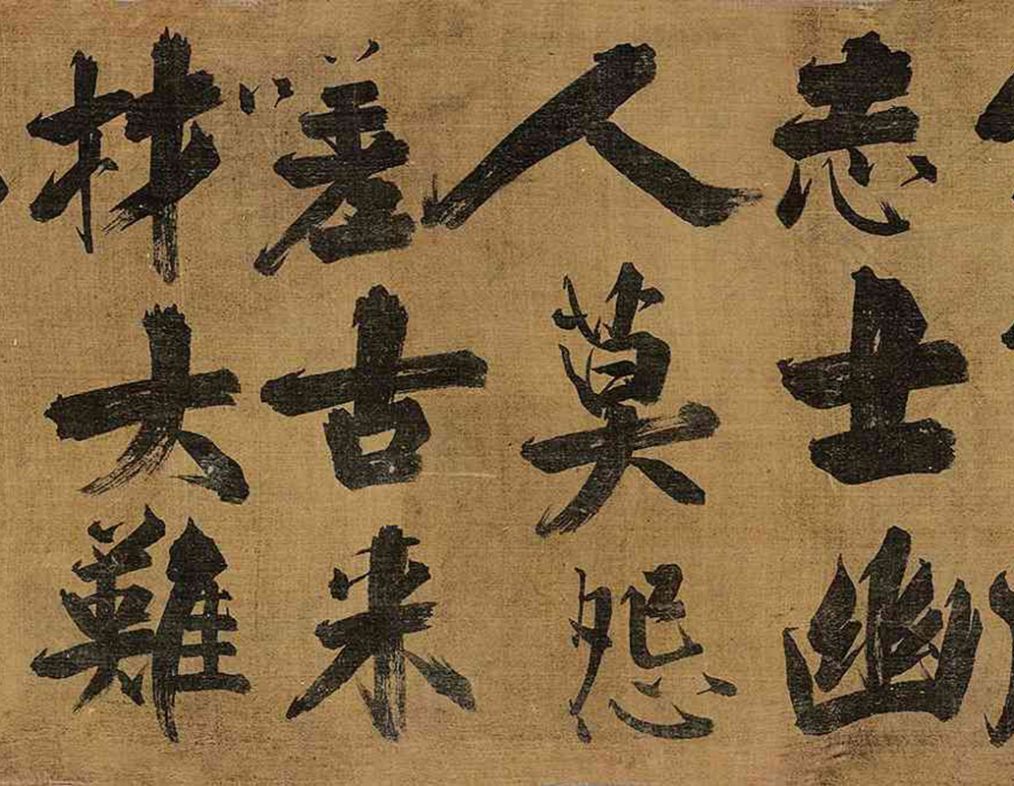 志士幽
人莫怨
嗟古来
材大難